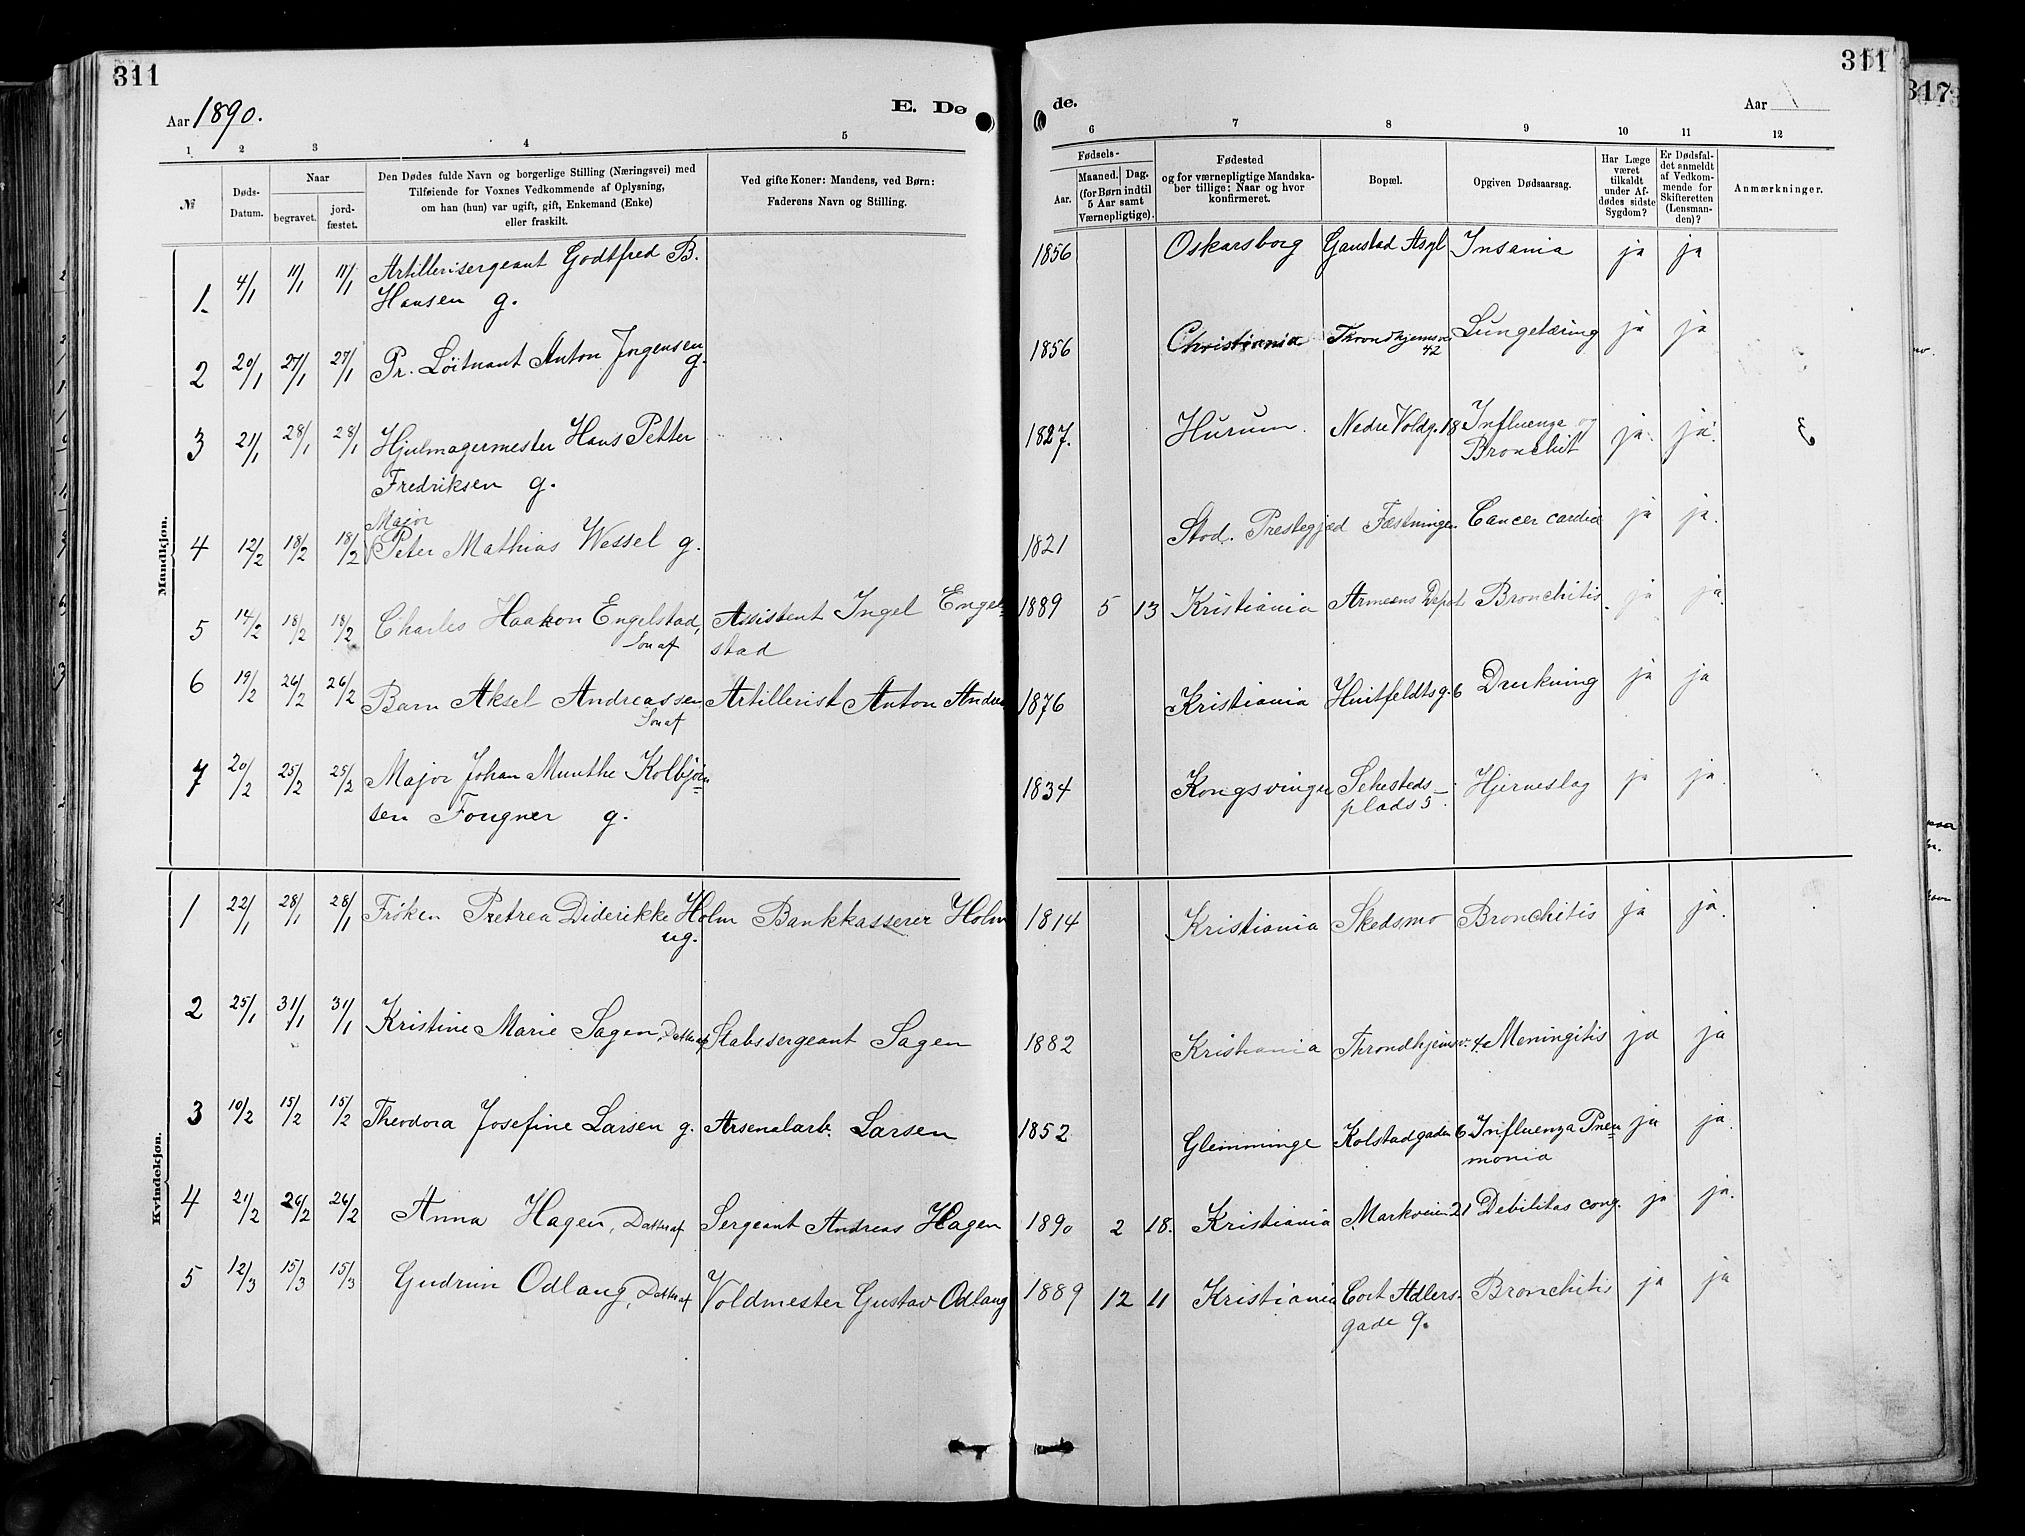 311
311
317
Aar 1890.
E. Dø
de.
Aar
1 2 3 4 5
6 7 8 9 10 11 12
№
Døds-Datum.
Naar
begravet.
jord-fæstet.
Den Dødes fulde Navn og borgerlige Stilling (Næringsvei) med
Tilføiende for Voxnes Vedkommende af Oplysning,
om han (hun) var ugift, gift, Enkemand (Enke)
eller fraskilt.
Ved gifte Koner: Mandens, ved Børn:
Faderens Navn og Stilling.
Fødsels-
Aar.
Maaned. Dag.
(for Børn indtil
5 Aar samt
Værnepligtige).
Fødested
og for værnepligtige Mandska-
ber tillige: Naar og hvor
konfirmeret.
Bopæl.
Opgiven Dødsaarsag.
Har Læge
været
tilkaldt
under Af-
dødes sidste
Sygdom?
Er Dødsfal-
det anmeldt
af Vedkom-
mende for
Skifteretten
(Lensman-
den)?
Anmærkninger.
Mandkjøn.
1. 4/1 11/1 11/1 Artillerisergeant Godtfred B. 1856 Oskarsborg Gaustad Asyl Insania ja ja
Hansen g.
2 20/1 27/1 27/1 Pr. Løitnant Anton Jørgensen 1856 Christiania Throndhjemsv. Lungetæring ja ja
g. 42
3 21/1 28/1 28/1 Hjulmagermester Hans Petter 1827. Hurum. Nedre Voldg. 18 Influenza og ja. ja.
Fredriksen g. Bronchit
Major
4 12/2 18/2 18/2 Peter Mathias Wessel g. 1821 Stod. Prestegjæd Fæstningen Cancer cardia ja ja.
5 14/2 18/2 18/2 Charles Haakon Engelstad, Assistent Ingel Engel= 1889 5 13 Kristiania Armeens Depot Bronchitis. ja ja.
Søn af stad
6 19/2 26/2 26/2 Barn Aksel Andreassen Artillerist Anton Andrea 1876 Kristiania Huitfeldtsg. 6 Drukning ja ja
Søn af
7 20/2 25/2 25/2 Major Johan Munthe Kolbjørn= 1834 Kongsvinger Sehesteds- Hjerneslag ja ja.
sen Fougner g. plads 5.
Kvindekjøn.
1 22/1 28/1 28/1 Frøken Petrea Diderikke Holm Bankkasserer Holm 1814 Kristiania Skedsmo Bronchitis ja ja.
ug.
2 25/1 31/1 31/1 Kristine Marie Sagen, Datter af Stabssergeant Sagen 1882 Kristiania Throndhjemsv. 4. Meningitis ja ja
3 10/2 15/2 15/2 Theodora Josefine Larsen g. Arsenalarb. Larsen 1852 Glemminge Kolstadgaden 6 Influenza Pneu= ja ja.
monia
4 21/2 26/2 26/2 Anna Hagen, Datter af Sergeant Andreas Hagen 1890 2 18. Kristiania Markveien 21 Debilitas cong. ja ja.
5 12/3 15/3 15/3 Gudrun Odlaug, Datter af Voldmester Gustav Odlaug 1889 12 11 Kristiania Cort Adlers- Bronchitis ja ja
gade 9.